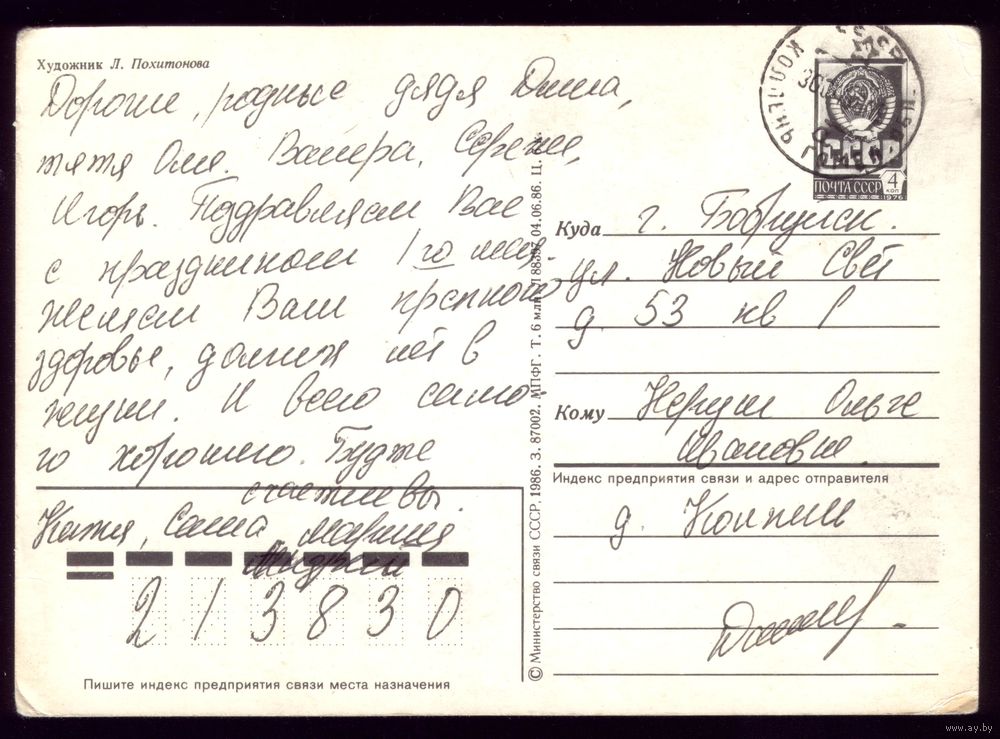 Художник Л. Похитонова
Дорогие, родные дядя Дима,
тётя Оля, Валера, Сережа,
Игорь. Поздравляем Вас
с праздником 1го мая.
желаем Вам крепкого
здоровье, долгих лет в
жизни. И всего само
го хорошего. Будте
счастливы.
Катя, Саша, Марина
Андрей
213830
Пишите индекс предприятия связи места назначения
© Министерство связи СССР, 1986. З. 87002. МПФГ. Т. 6 млн. 04.06.86. Ц.
СССР
ПОЧТА СССР 4 коп
1976
Куда г. Бобруйск.
ул. Новый Свет
д. 53 кв 1
Кому Ольге
Ивановне.
Индекс предприятия связи и адрес отправителя
д. Колпень
www.ay.by